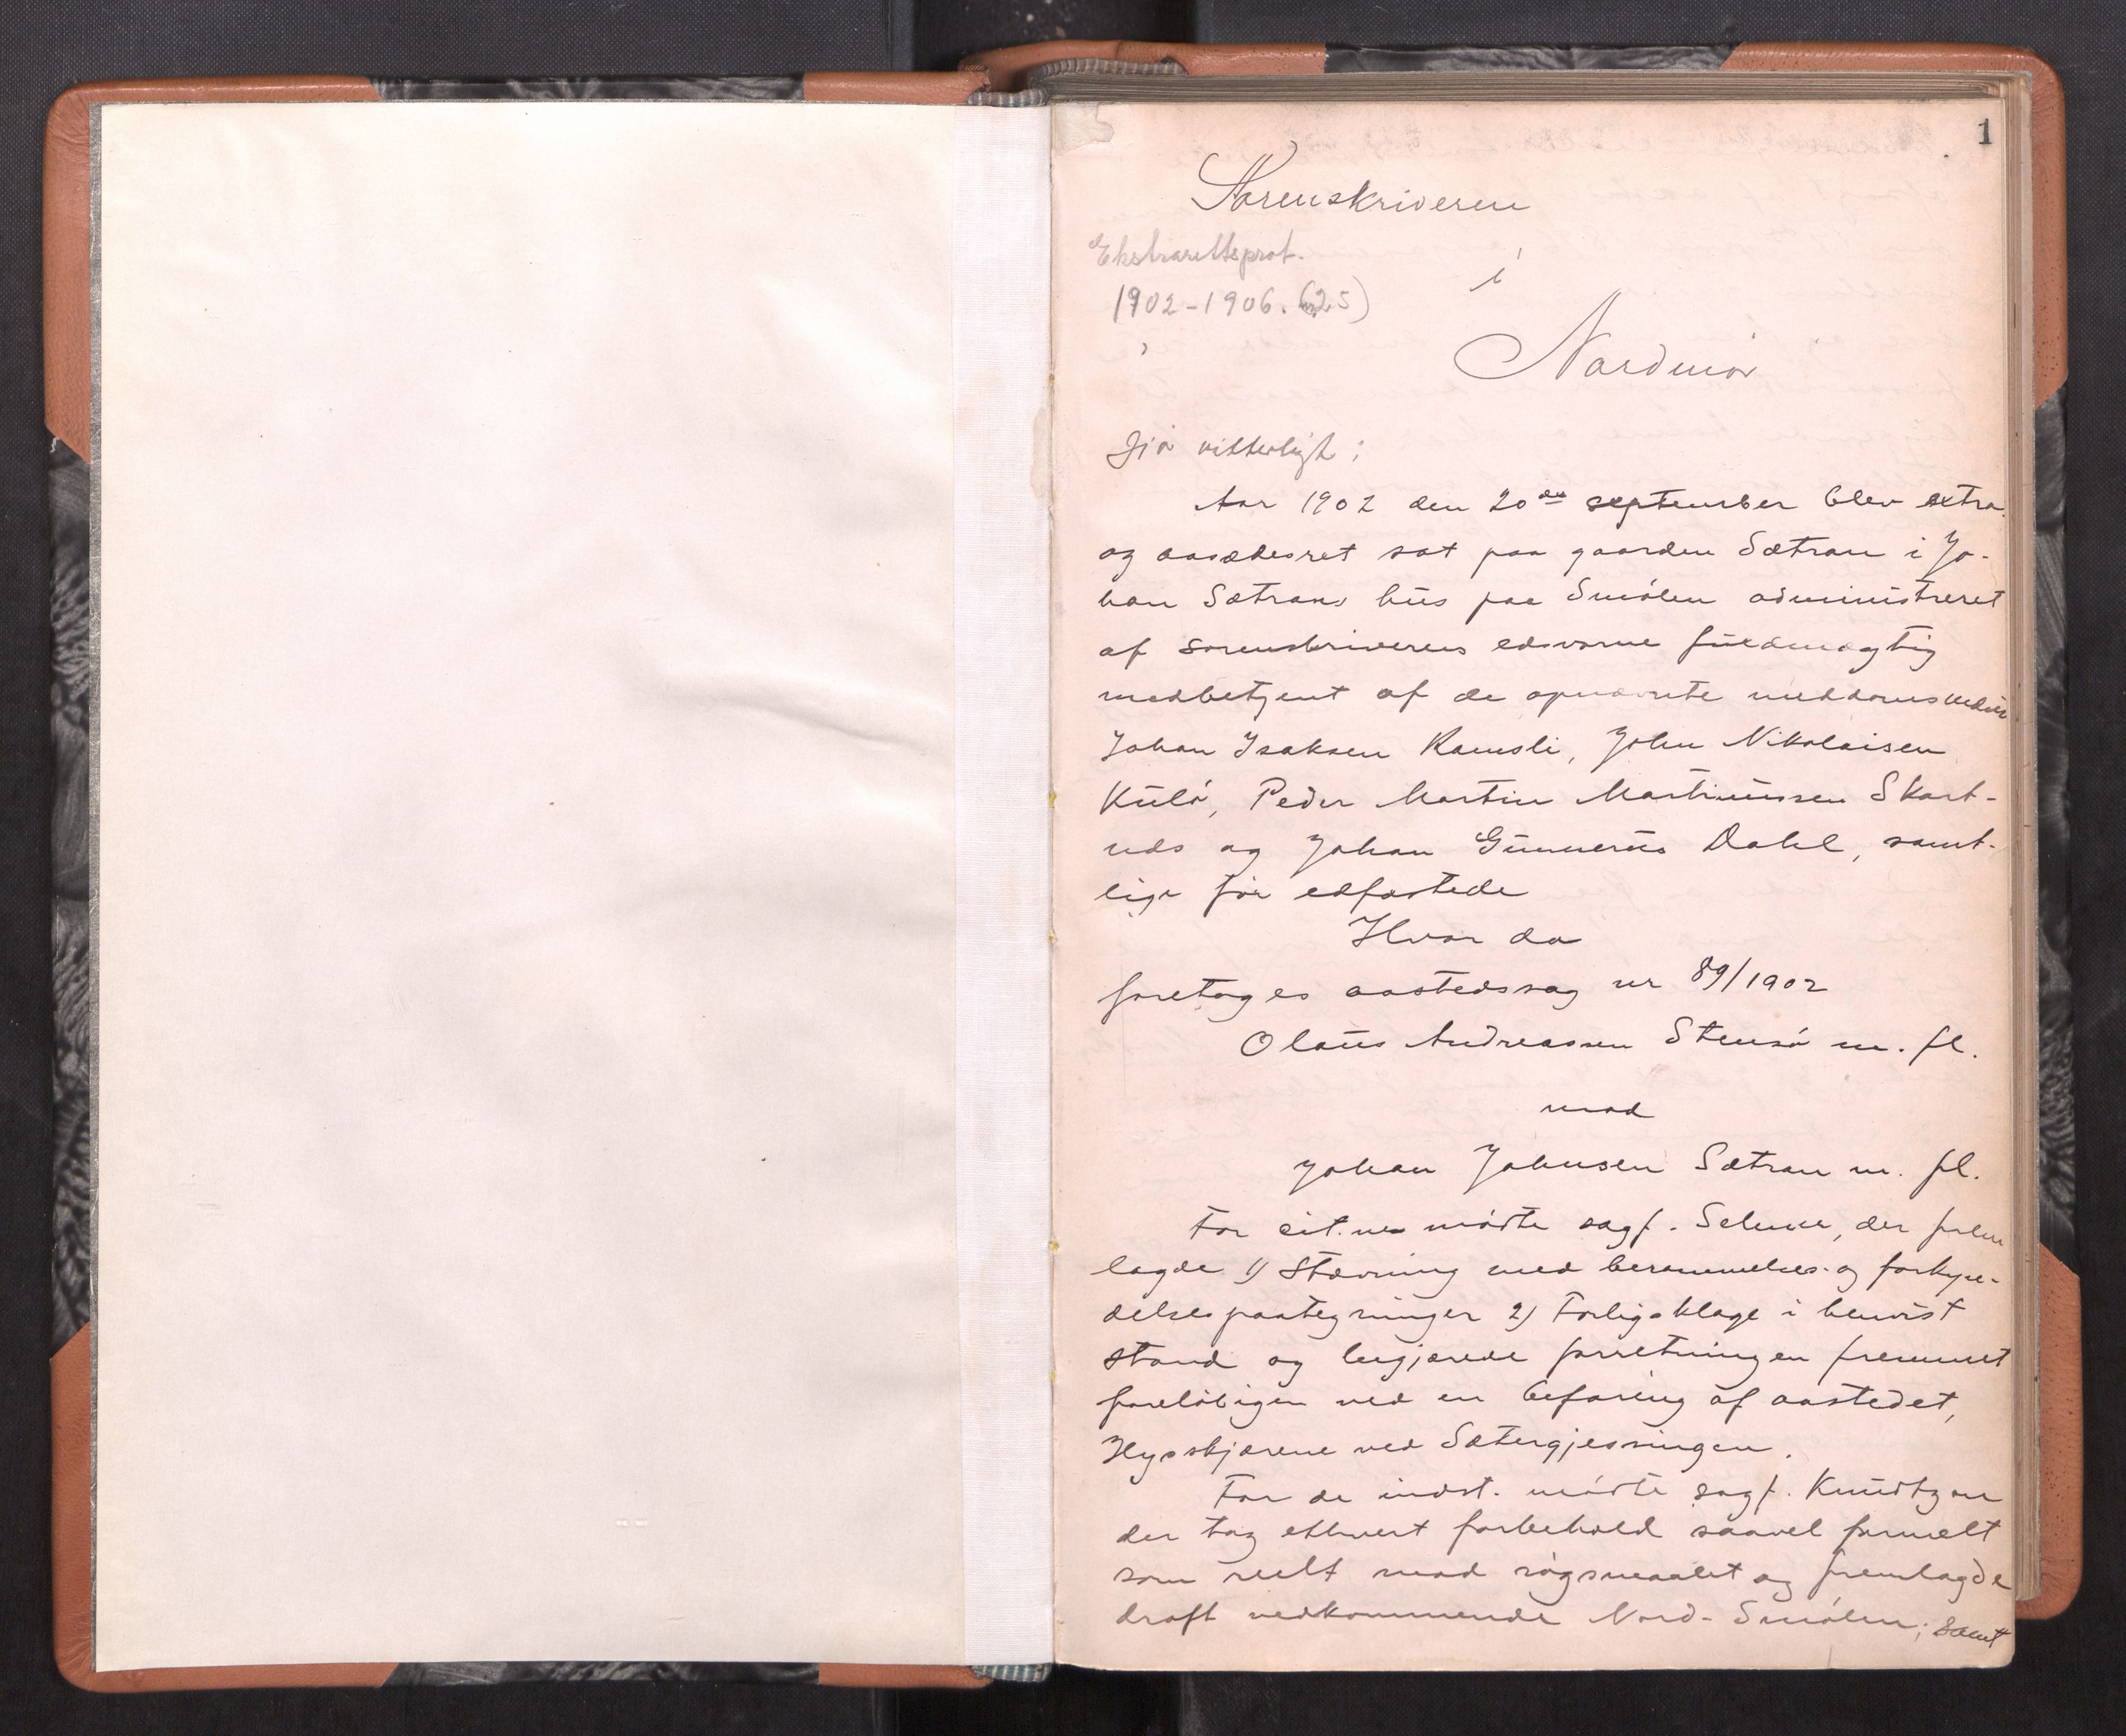 1
Sorenskriveren
Ekstrarettsprot.
i
1902-1906. (nr. 25)
Nordmør
Gjør vitterligt:
Aar 1902 den 20de september blev extra
og aasædesret sat paa gaarden Sætran i Jo-
han Sætrans hus paa Smølen administreret
af sorenskriverens edsvorne fuldmægtig
medbetjent af de opnævnte meddomsmænd
Johan Isaksen Ramsli, John Nikolaisen
Kulø, Peder Martin Martinussen Skart-
nds og Johan Gunnerus Dahl, samt-
lige før edfæstede
Hvor da
foretoges aastedssag nr 89/1902
Olaus Andreassen Stensø m. fl.
mod
Johan Johnsen Sætran m. fl.
For cit.ne mødte sagf. Selmer, der frem
lagde 1) Stævning med berammelses- og forkyn-
delsespaategninger 2) Forligsklage i henvist
stand og begjærede forretningen fremmet
foreløbigen ved en befaring af aastedet,
Hysskjærene ved Sætergjesningen.
For de indst. mødte sagf. Knudtzon
der tog ethvert forbehold saavel formelt
som reelt mod søgsmaalet og fremlagde
draft vedkommende Nord-Smølen; samt